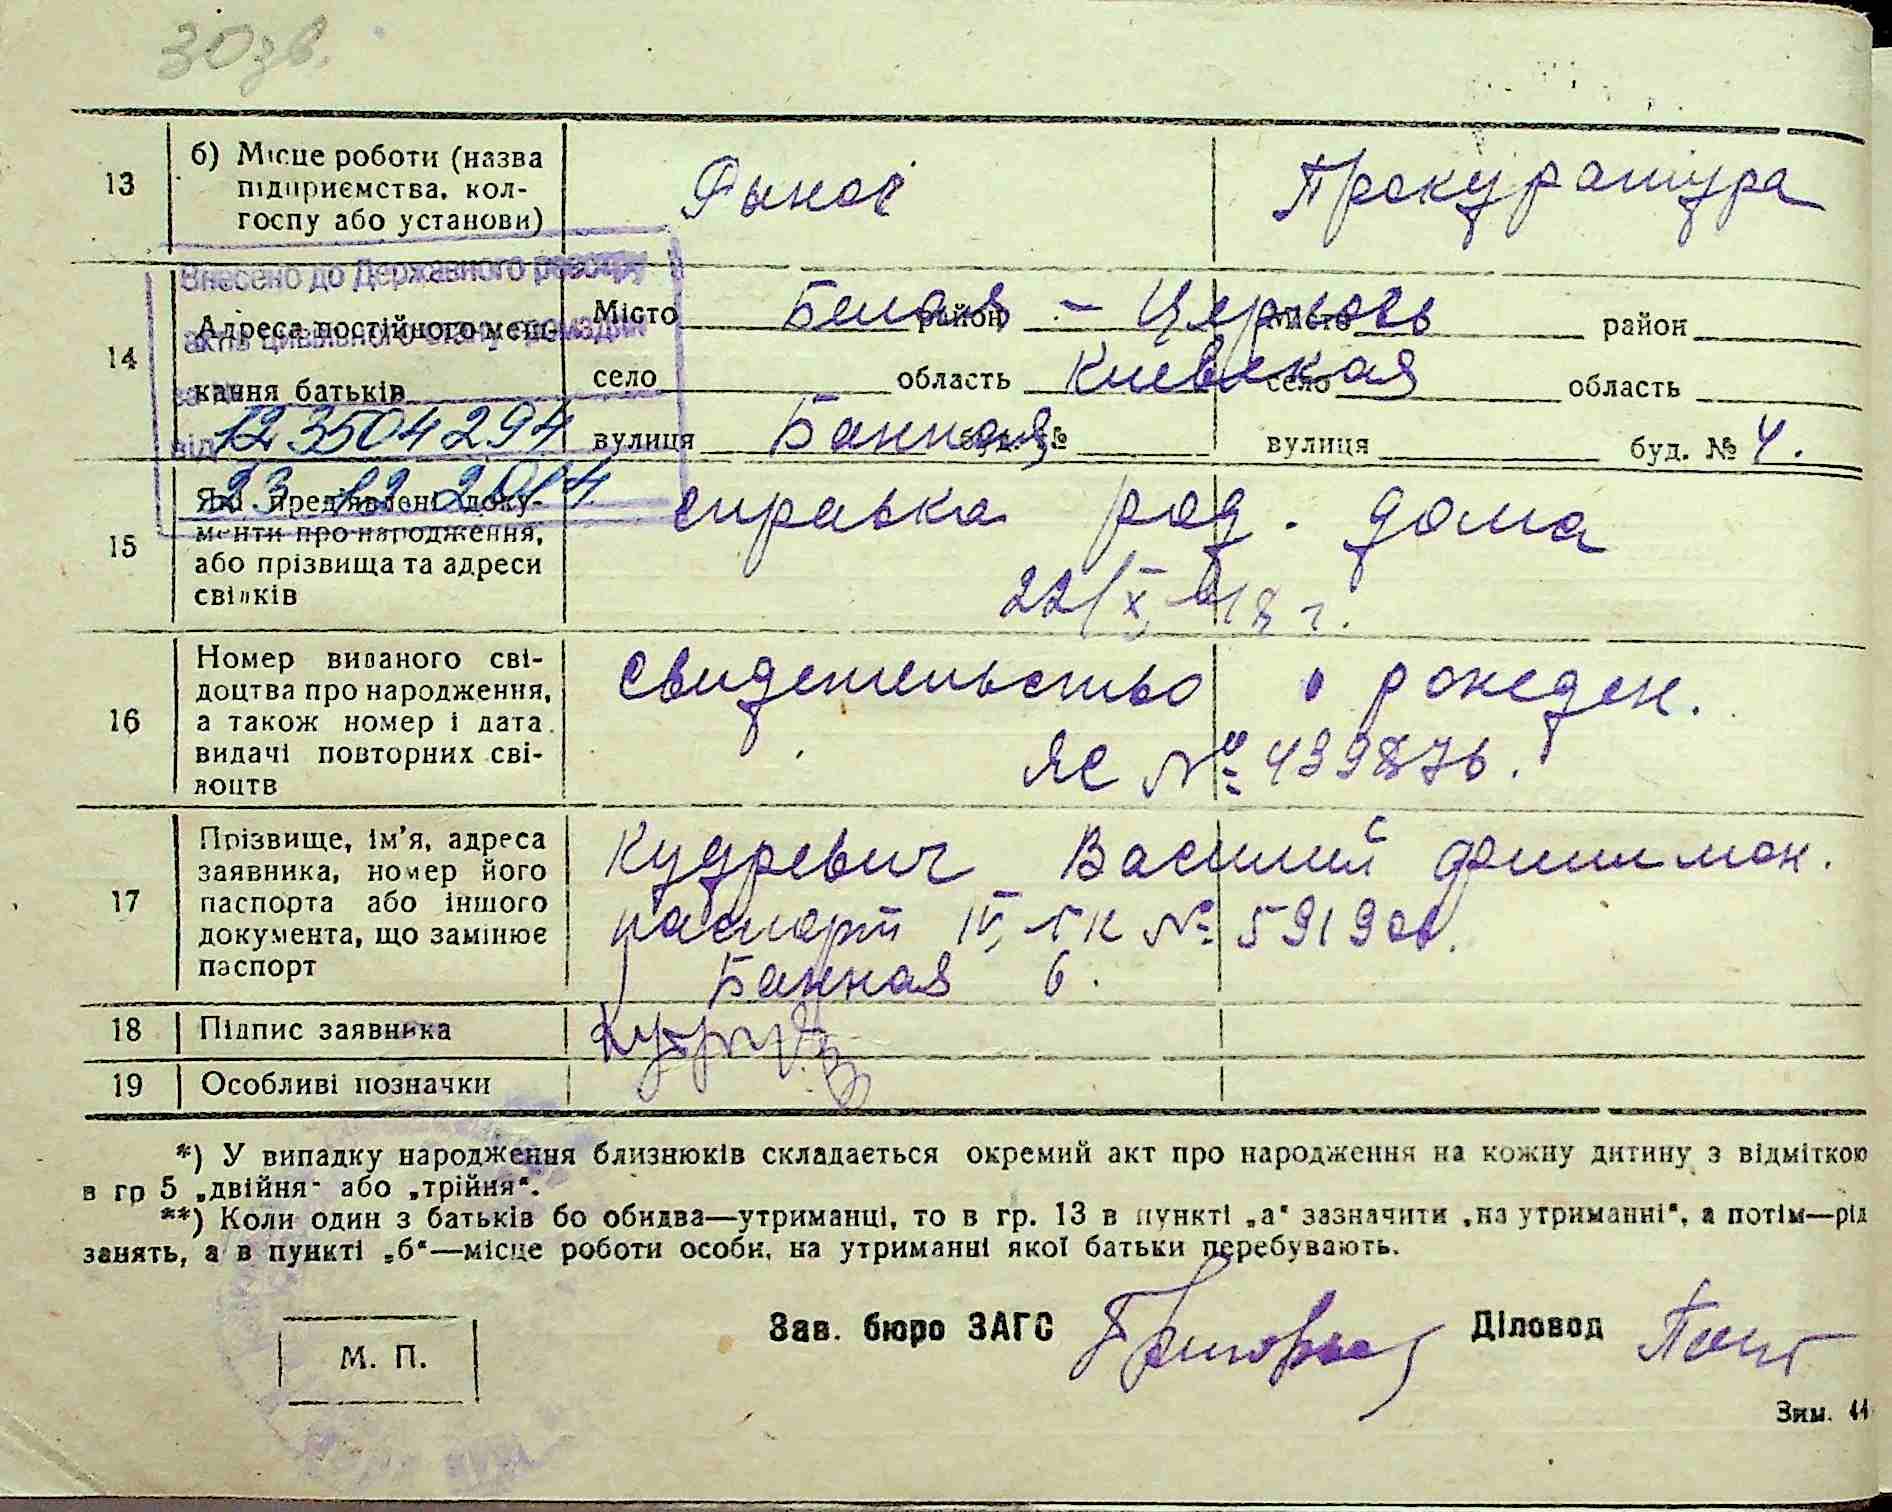 30зв.
13
б) Місце роботи (назва
підприємства, кол-
госпу або установи)
Рынок
Прокуратура
Внесено до Державного реєстру
актів цивільного стану громадян
за №
12 3504294
від 23 12 2014
14
Адреса постійного меш-
кання батьків
Місто Белая район - Церковь
село область Киевская
вулиця Банная буд. №
місто район
село область
вулиця буд. № 4.
15
Які пред'явлені доку-
менти про народження,
або прізвища та адреси
свідків
справка род. дома
22/X
16
Номер виданого сві-
доцтва про народження,
а також номер і дата
видачі повторних сві-
доцтв
Свидетельство о рожден.
ЯС №
17
Прізвище, ім'я, адреса
заявника, номер його
паспорта або іншого
документа, що замінює
паспорт
Кудревич Василий Филимон.
паспорт IV № 
Банная 6.
18
Підпис заявника
19
Особливі позначки
*) У випадку народження близнюків складається окремий акт про народження на кожну дитину з відміткою
в гр 5 „двійня" або „трійня".
**) Коли один з батьків бо обидва—утриманці, то в гр. 13 в пункті „а" зазначити „на утриманні", а потім—рід
занять, а в пункті „б"—місце роботи особи, на утриманні якої батьки перебувають.
М. П.
Зав. бюро ЗАГС
Діловод
Зим. 44